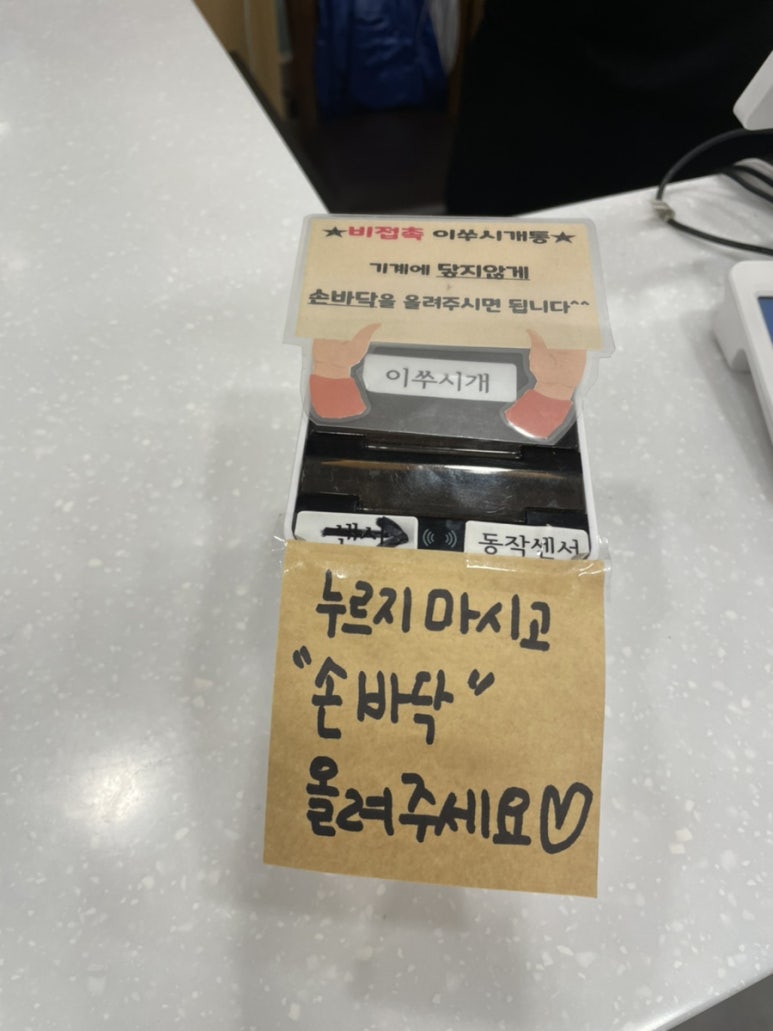 ★비접촉 이쑤시개통★
기계에 닿지않게
손바닥을 올려주시면 됩니다^^
이쑤시개
동작센서
누르지 마시고
"손바닥"
올려주세요♡